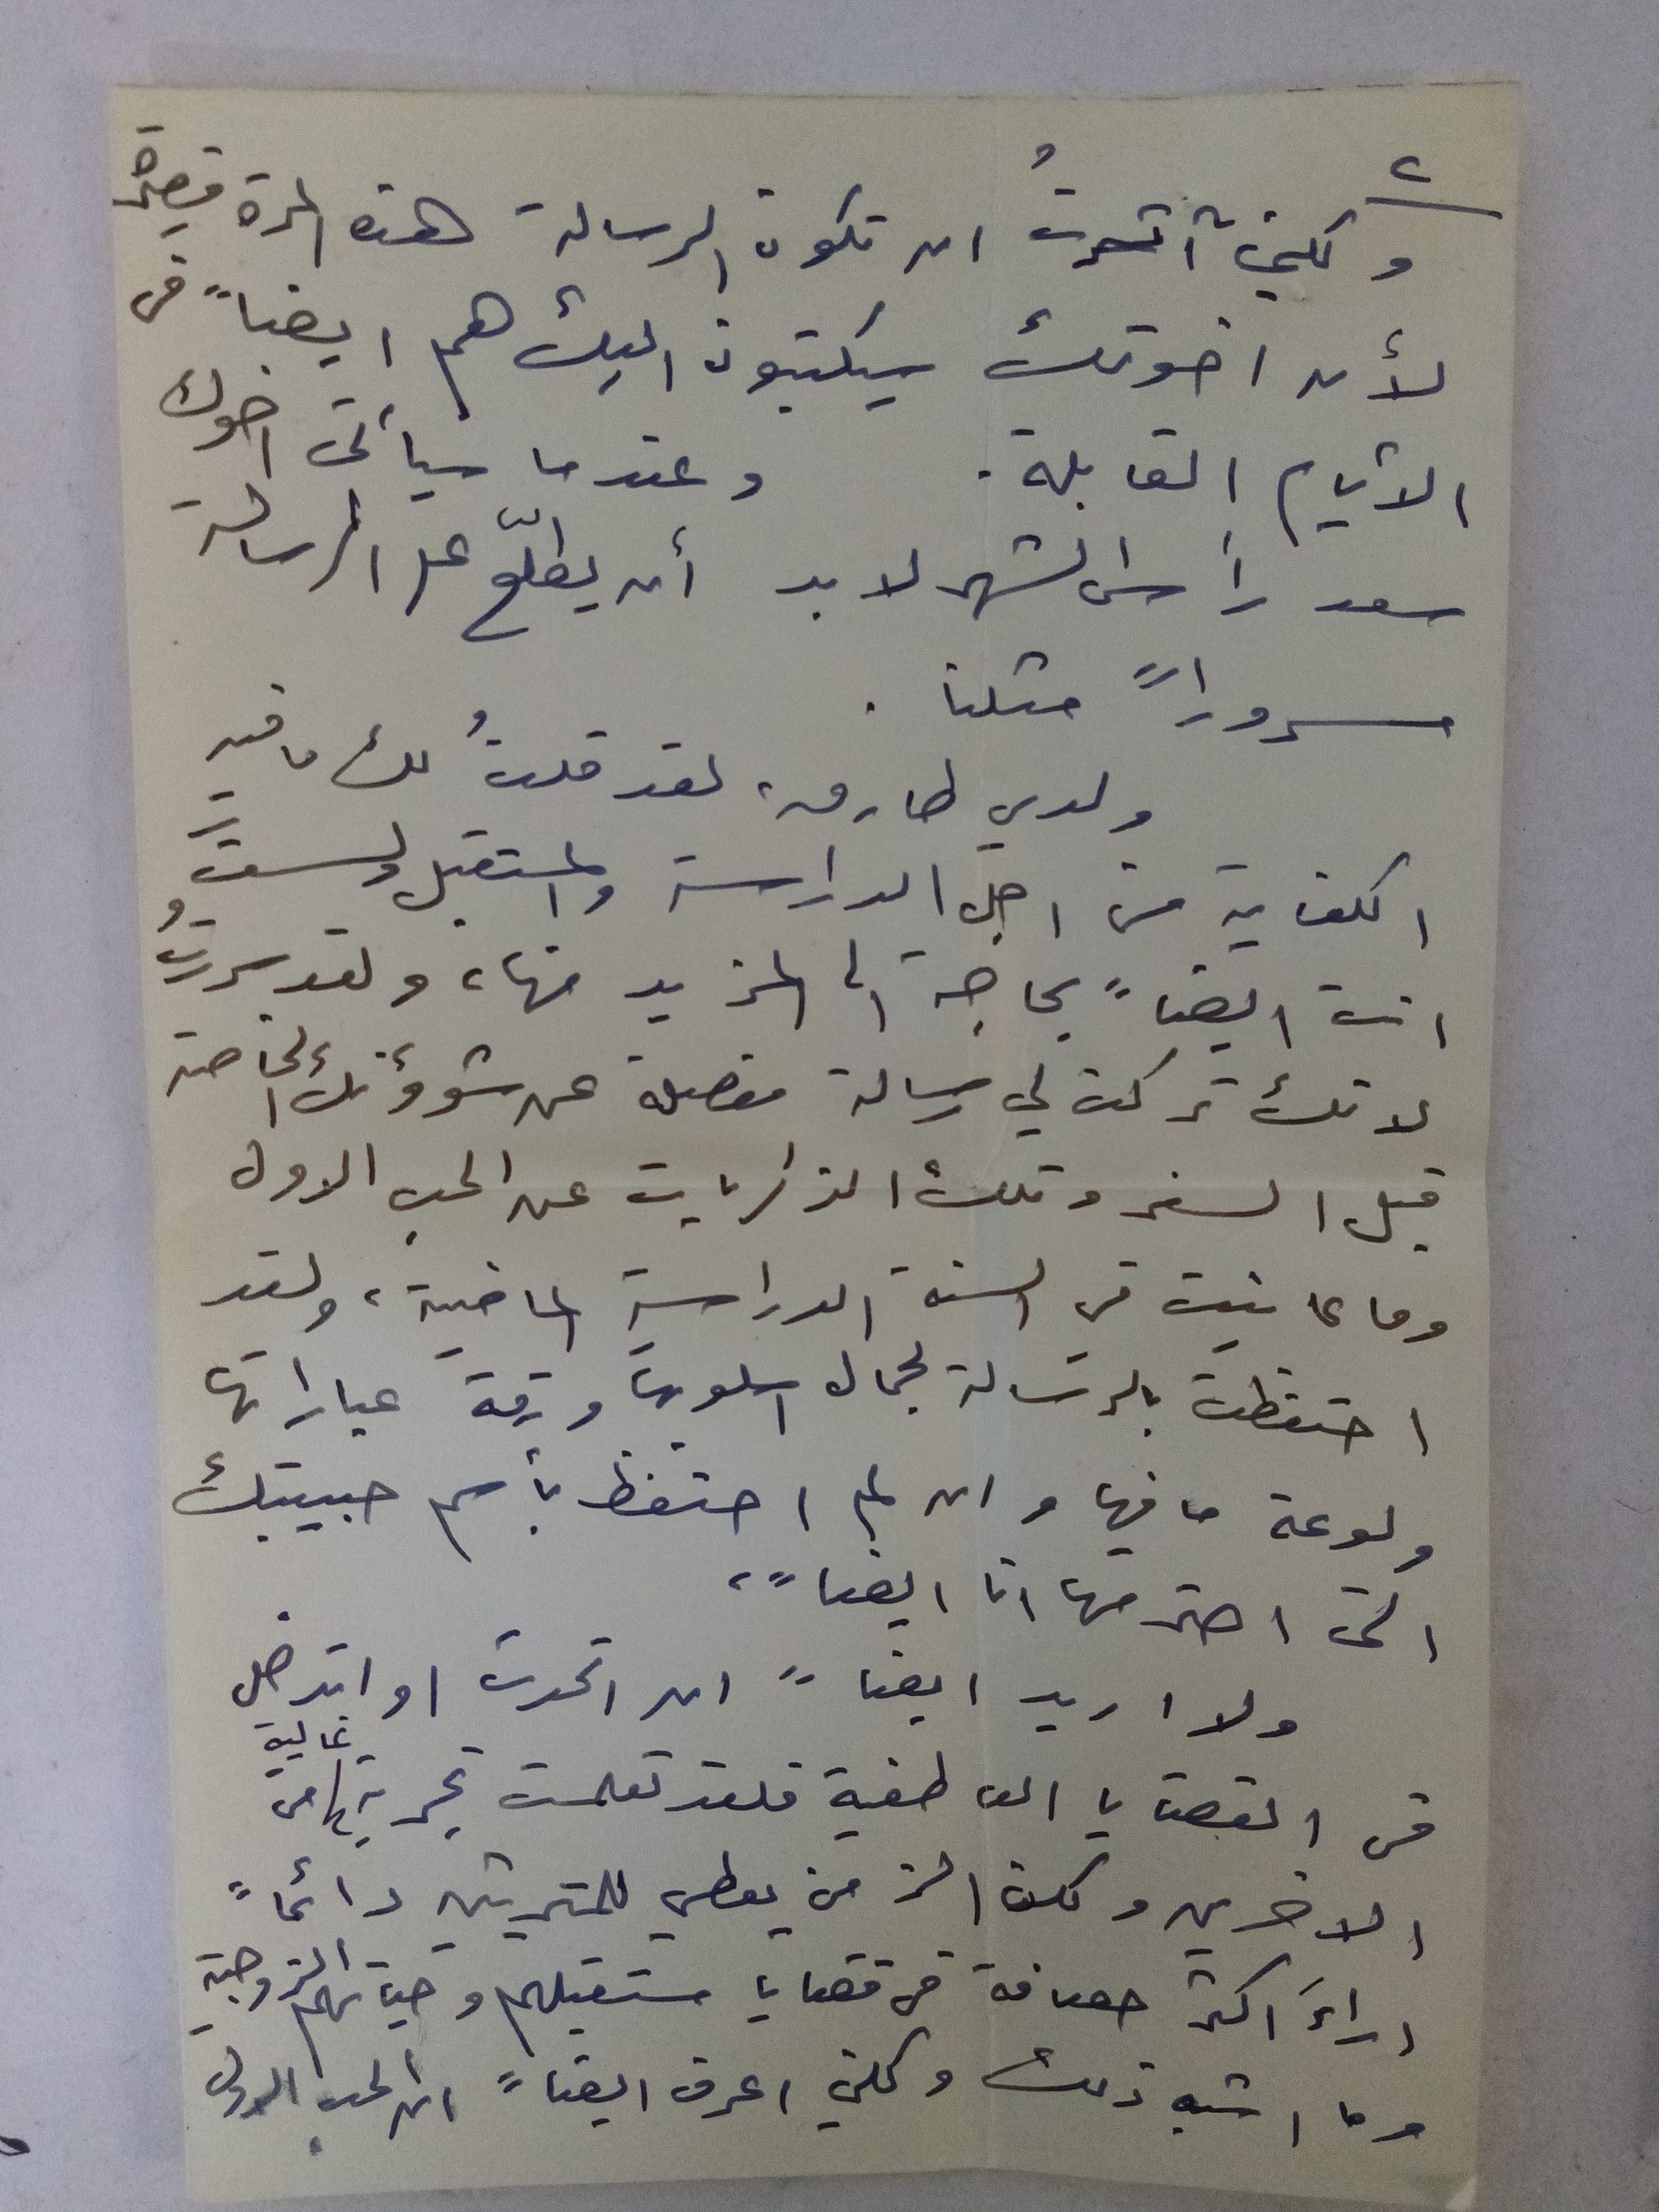 ٢
ولكني آثرتُ ان تكون الرسالة هذه المرة قصيرة
لأن اخوتك سيكتبون اليك هم ايضاً في
الأيام القابلة. وعندما سيأتي اخوك
سعد رأس الشهر لا بد أن يطلّع على الرسالة
مسروراً مثلنا.
ولدي طارق، لقد قلتُ لك ما فيه
الكفاية من اجل الدراسة والمستقبل ولستَ
انت ايضاً بحاجة الى المزيد منها، ولقد سررتُ
لانك تركت لي رسالة مفصلة عن شؤونك الخاصة
قبل السفر وتلك الذكريات عن الحب الاول
وما عانيت في السنة الدراسية الماضية، ولقد
احتفظت بالرسالة لجمال اسلوبها ورقة عباراتها
ولوعة ما فيها وان لم احتفظ بأسم حبيبتك
التي احترمها انا ايضاً،
ولا اريد ايضاً ان اتحدث او اتدخل
في القضايا العاطفية فلقد تعلمت تجربة غالية من
الاخرين ولكن الزمن يعطي للمتريثين دائماً
اراءً اكثر حصافة في قضايا مستقبلهم وحياتهم الزوجية
وما اشبه ذلك ولكني اعرف ايضاً ان الحب الاول